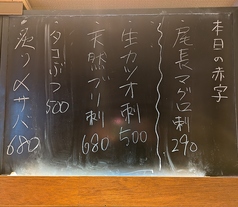 本日の赤字
尾長マグロ刺 290
生カツオ刺 500
天然ブリ刺 680
タコぶつ 500
炙り〆サバ 680